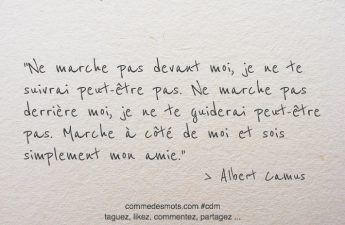 "Ne marche pas devant moi, je ne te
suivrai peut-être pas. Ne marche pas
derrière moi, je ne te guiderai peut-être
pas. Marche à côté de moi et sois
simplement mon amie."
> Albert Camus
commedesmots.com #cdm
taguez, likez, commentez, partagez ...